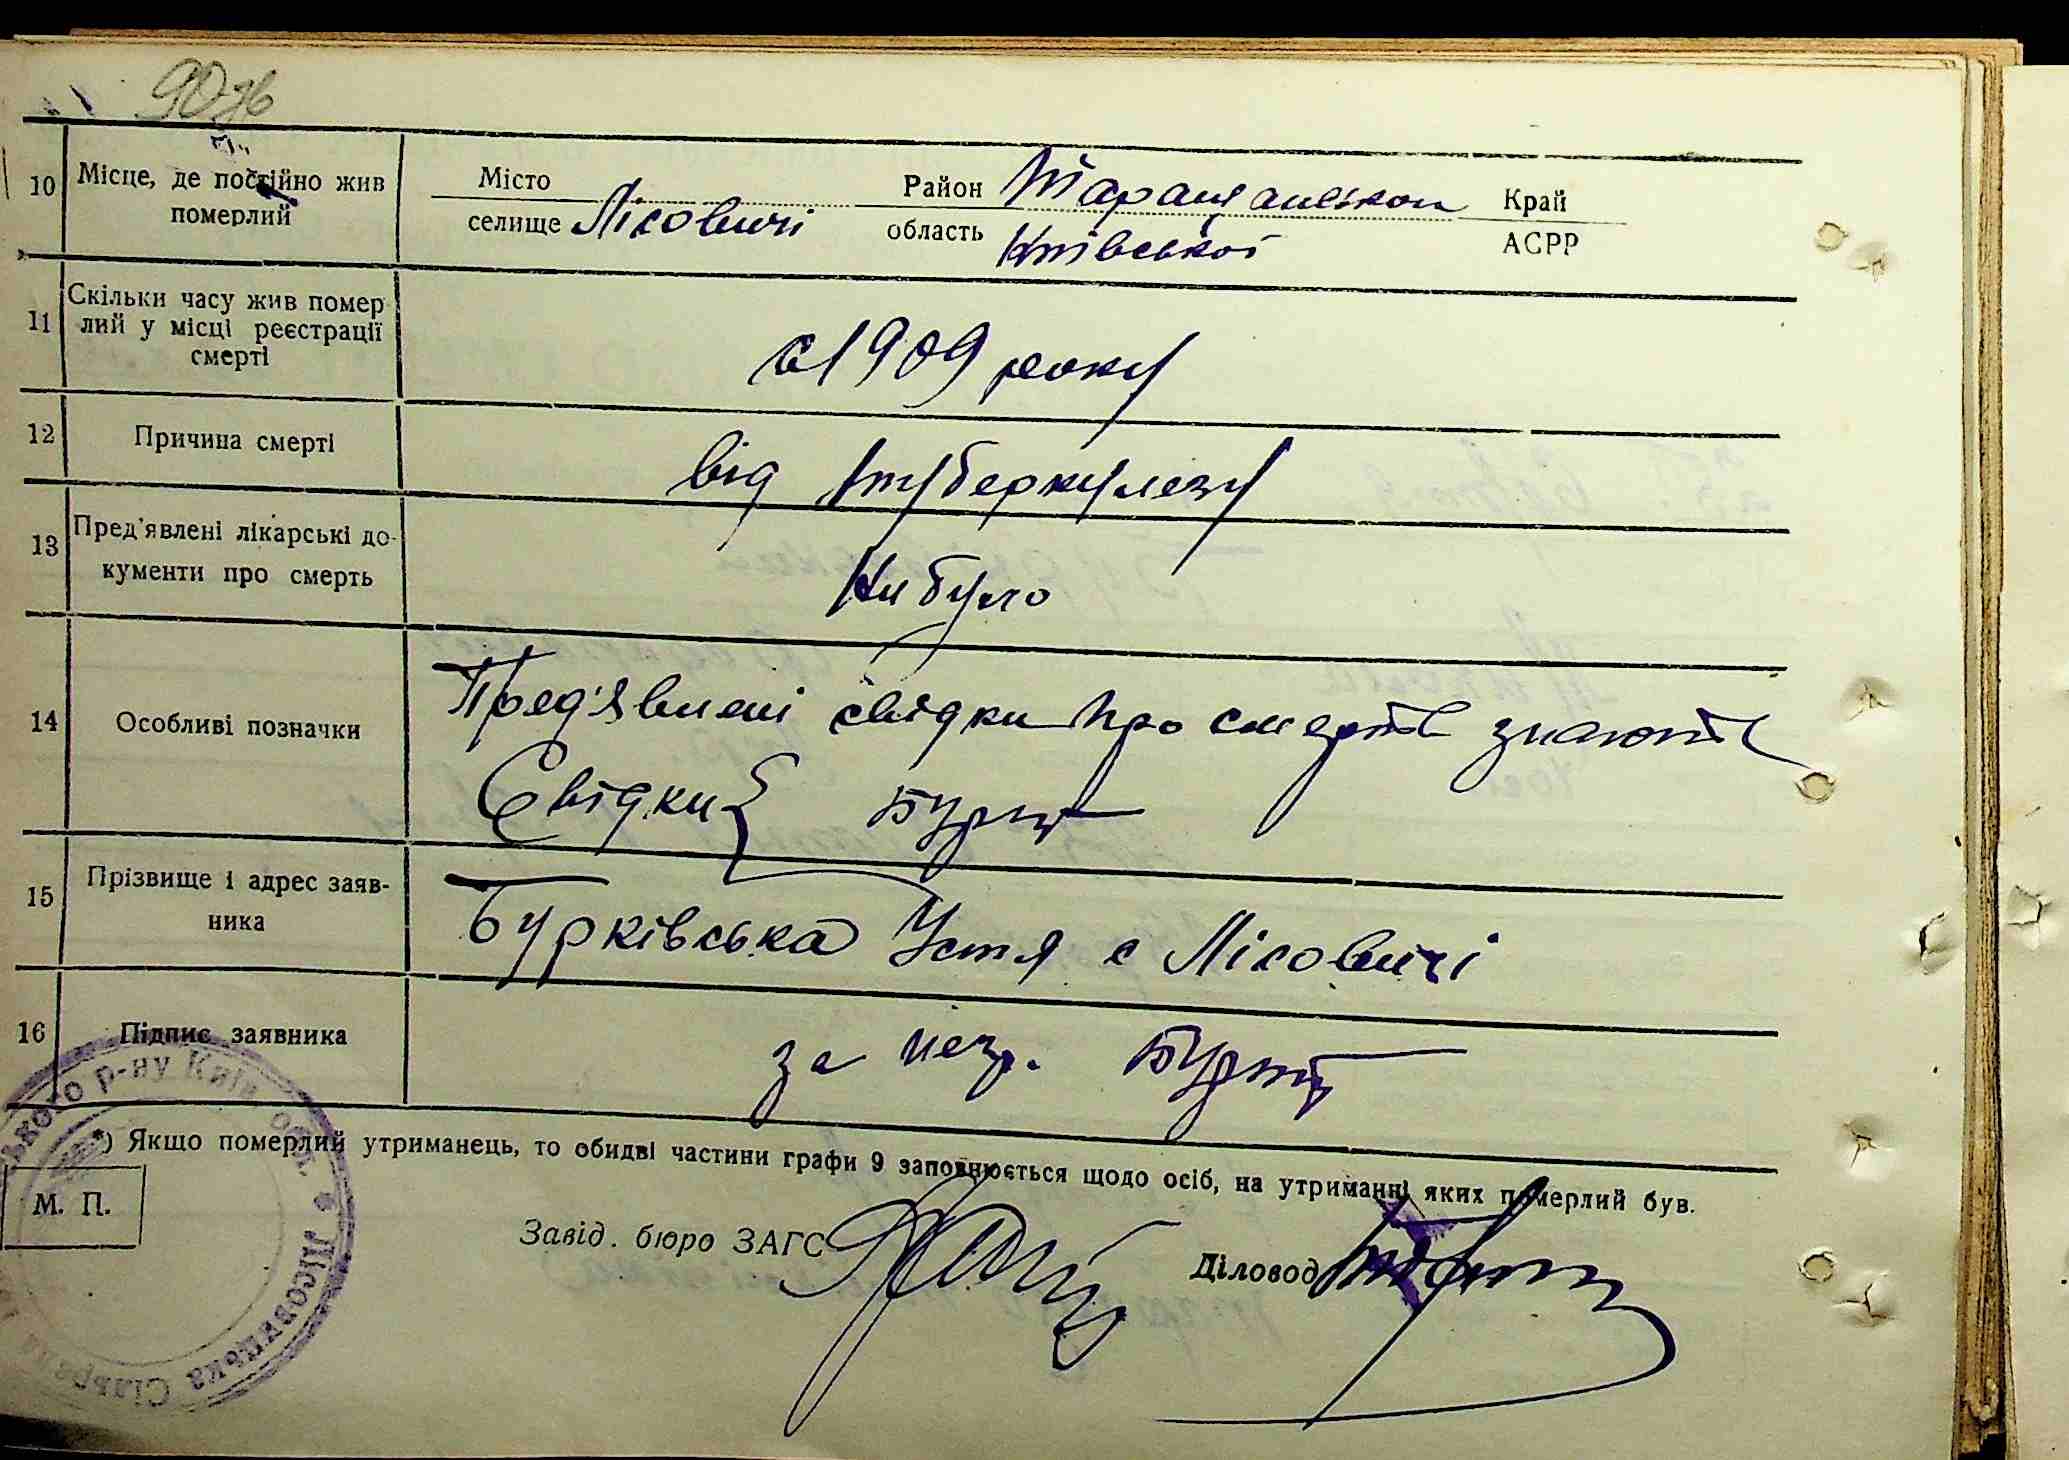 90зв
10 Місце, де постійно жив
померлий
Місто
селище Лісовичі
Район Таращанської
область Київської
Край
АСРР
11 Скільки часу жив помер
лий у місці реєстрації
смерті
с 1909 року
12 Причина смерті
від туберкулезу
13 Пред'явлені лікарські до-
кументи про смерть
Ни було
14 Особливі позначки
Пред'явлені свідки про смерть знають
Свідки
15 Прізвище і адрес заяв-
ника
Бурківська Устя с Лісовичі
16 Підпис заявника
за негр.
*) Якщо померлий утриманець, то обидві частини графи 9 заповнюється щодо осіб, на утриманні яких померлий був.
М. П.
Завід. бюро ЗАГС
Діловод
р-ну Київ. обл. Лісовецька Сільрада